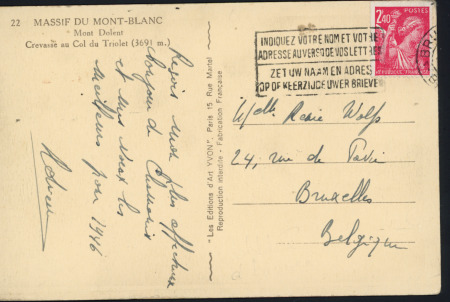 22 MASSIF DU MONT-BLANC
Mont Dolent
Crevasse au Col du Triolet (3691 m.)
Reçois mes plus affectueux
de Chamonix
et mes vœux les
meilleurs pour 1946
"Les Editions d'Art YVON", Paris 15, Rue Martel
Reproduction interdite - Fabrication Française
INDIQUEZ VOTRE NOM ET VOTRE
ADRESSE AU VERSO DE VOS LETTRES
ZET UW NAAM EN ADRES
OP DE KEERZIJDE UWER BRIEVEN
POSTES
2,40
Rosie Wolfs
24, rue de Pavie
Bruxelles
Belgique